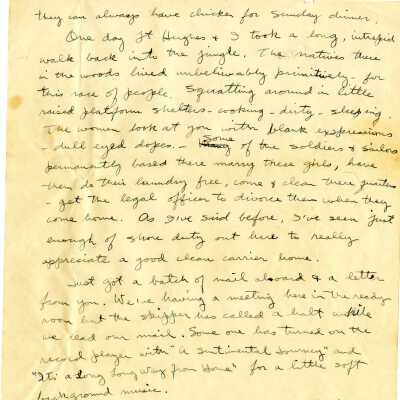 they can always have chicken for Sunday dinner.
One day Jt Hughes & I took a long, intrepid
walk back into the jungle. The natives there
in the woods lived unbelievably primitively - for
this race of people. Squatting around in little
raised platform shelters - cooking - dirty - sleeping.
The women look at you with blank expressions
- dull eyed dopes. - Some of the soldiers & sailors
permanently based there marry these girls, have
them do their laundry free, come & clean there quarters
- get the legal officer to divorce them when they
come home. As I've said before, I've seen just
enough of shore duty out here to really
appreciate a good clean carrier home.
Just got a batch of mail aboard & a letter
from you. We're having a meeting here in the ready
room but the skipper has called a halt while
we read our mail. Some one has turned on the
record player with "A Sintimental Journey" and
"It's a Long Long Way from Home" for a little soft
background music.